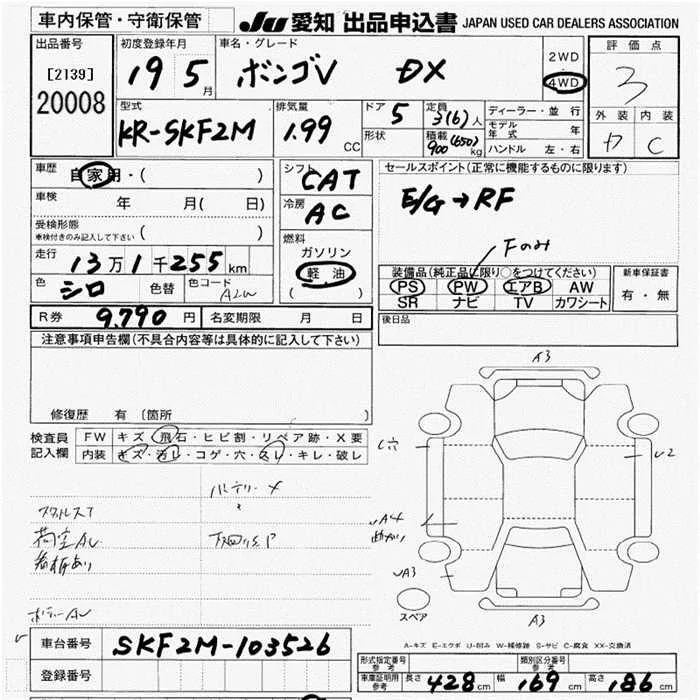 車内保管・守衛保管 JU 愛知 出品申込書 JAPAN USED CAR DEALERS ASSOCIATION
出品番号 初度登録年月 車名・グレード 2WD 評価点
[2139] 19 5月 ボンゴV DX 4WD 3
20008
型式 排気量 ドア 5 定員 3(6)人 ディーラー・並行 外装 内装
KR-SKF2M 1.99 CC 形状 積載 900(650)kg モデル年式 年 C
ハンドル 左・右
車歴 自家用・( ) シフト CAT セールスポイント(正常に機能するものに限ります)
車検 年 月( 日) 冷房 AC E/G→RF
受検形態 ( )
車検付きのみ記入して下さい
燃料 Fのみ
走行 13万1千255km ガソリン 装備品(純正品に限り○をつけてください) 新車保証書
色 シロ 色替 色コード A2W 軽油 PS PW エアB AW 有・無
( ) SR ナビ TV カワシート
R券 9,790円 名変期限 月 日 後日品
注意事項申告欄(不具合内容等は具体的に記入して下さい)
A3
修復歴 有 (箇所 )
検査員 FW キズ・飛石・ヒビ割・リペア跡・X要
記入欄 内装 キズ・汚レ・コゲ・穴・スレ・キレ・破レ
C穴 U2
バッテリーX
A4
荷室AU
看板あり
A3
ボディーAU スペア A3
A-キズ E-エクボ U-凹み W-補修跡 S-サビ C-腐食 XX-交換済
車台番号 SKF2M-103526
登録番号 形式指定番号 参考 類別区分番号 参考
車庫証明用 参考 長さ 428cm 幅 169cm 高さ 186cm